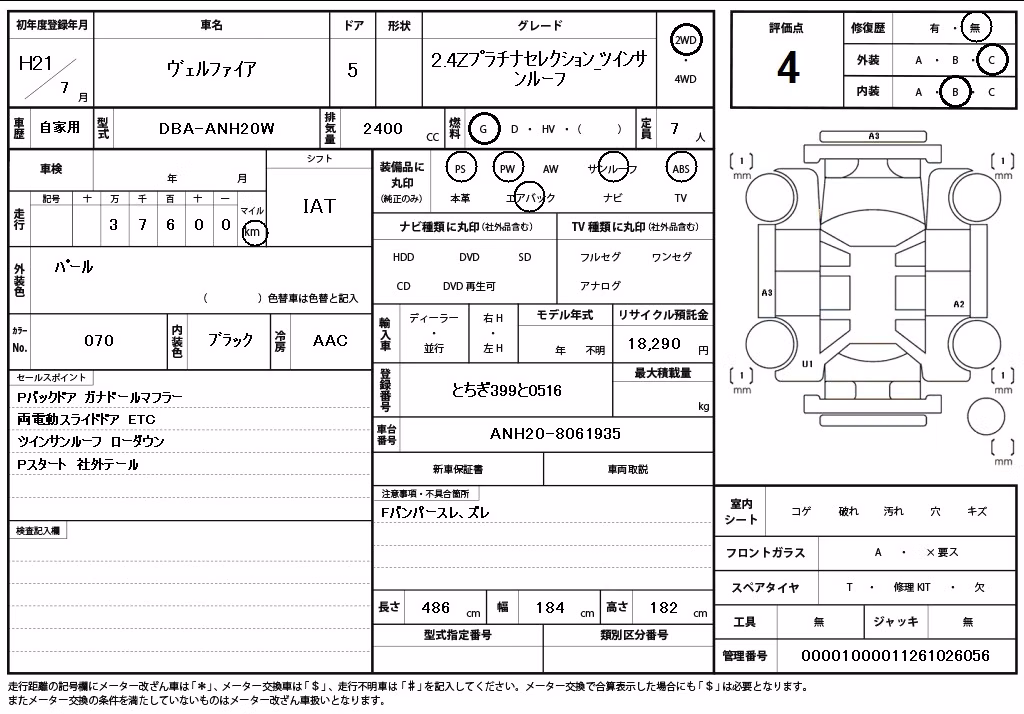 初年度登録年月 車名 ドア 形状 グレード
H21 / 7 月 ヴェルファイア 5 2.4Zプラチナセレクション_ツインサンルーフ 2WD ・ 4WD
車歴 自家用 型式 DBA-ANH20W 排気量 2400 CC 燃料 G D ・ HV ・ ( ) 定員 7 人
車検 年 月 シフト
走行 記号 十 万 千 百 十 一 マイル km
3 7 6 0 0
IAT
装備品に丸印(純正のみ) PS PW AW サンルーフ ABS
本革 エアバック ナビ TV
ナビ種類に丸印(社外品含む) TV 種類に丸印(社外品含む)
HDD DVD SD フルセグ ワンセグ
CD DVD 再生可 アナログ
外装色 パール
( ) 色替車は色替と記入
カラーNo. 070 内装色 ブラック 冷房 AAC
輸入車 ディーラー ・ 並行 右 H ・ 左 H モデル年式 年 不明 リサイクル預託金 18,290 円
登録番号 とちぎ399と0516 最大積載量 kg
車台番号 ANH20-8061935
新車保証書 車両取説
セールスポイント
Pバックドア ガナドールマフラー
両電動スライドドア ETC
ツインサンルーフ ローダウン
Pスタート 社外テール
検査記入欄
注意事項・不具合箇所
Fバンパースレ、ズレ
長さ 486 cm 幅 184 cm 高さ 182 cm
型式指定番号 類別区分番号
評価点 4
修復歴 有 ・ 無
外装 A ・ B ・ C
内装 A ・ B ・ C
A3
( 1 ) mm ( 1 ) mm
A3 A2
U1
( 1 ) mm ( 1 ) mm
( ) mm
室内シート コゲ 破れ 汚れ 穴 キズ
フロントガラス A ・ ×要ス
スペアタイヤ T ・ 修理 KIT ・ 欠
工具 無 ジャッキ 無
管理番号 00001000011261026056
走行距離の記号欄にメーター改ざん車は「＊」、メーター交換車は「＄」、走行不明車は「＃」を記入してください。メーター交換で合算表示した場合にも「＄」は必要となります。
またメーター交換の条件を満たしていないものはメーター改ざん車扱いとなります。